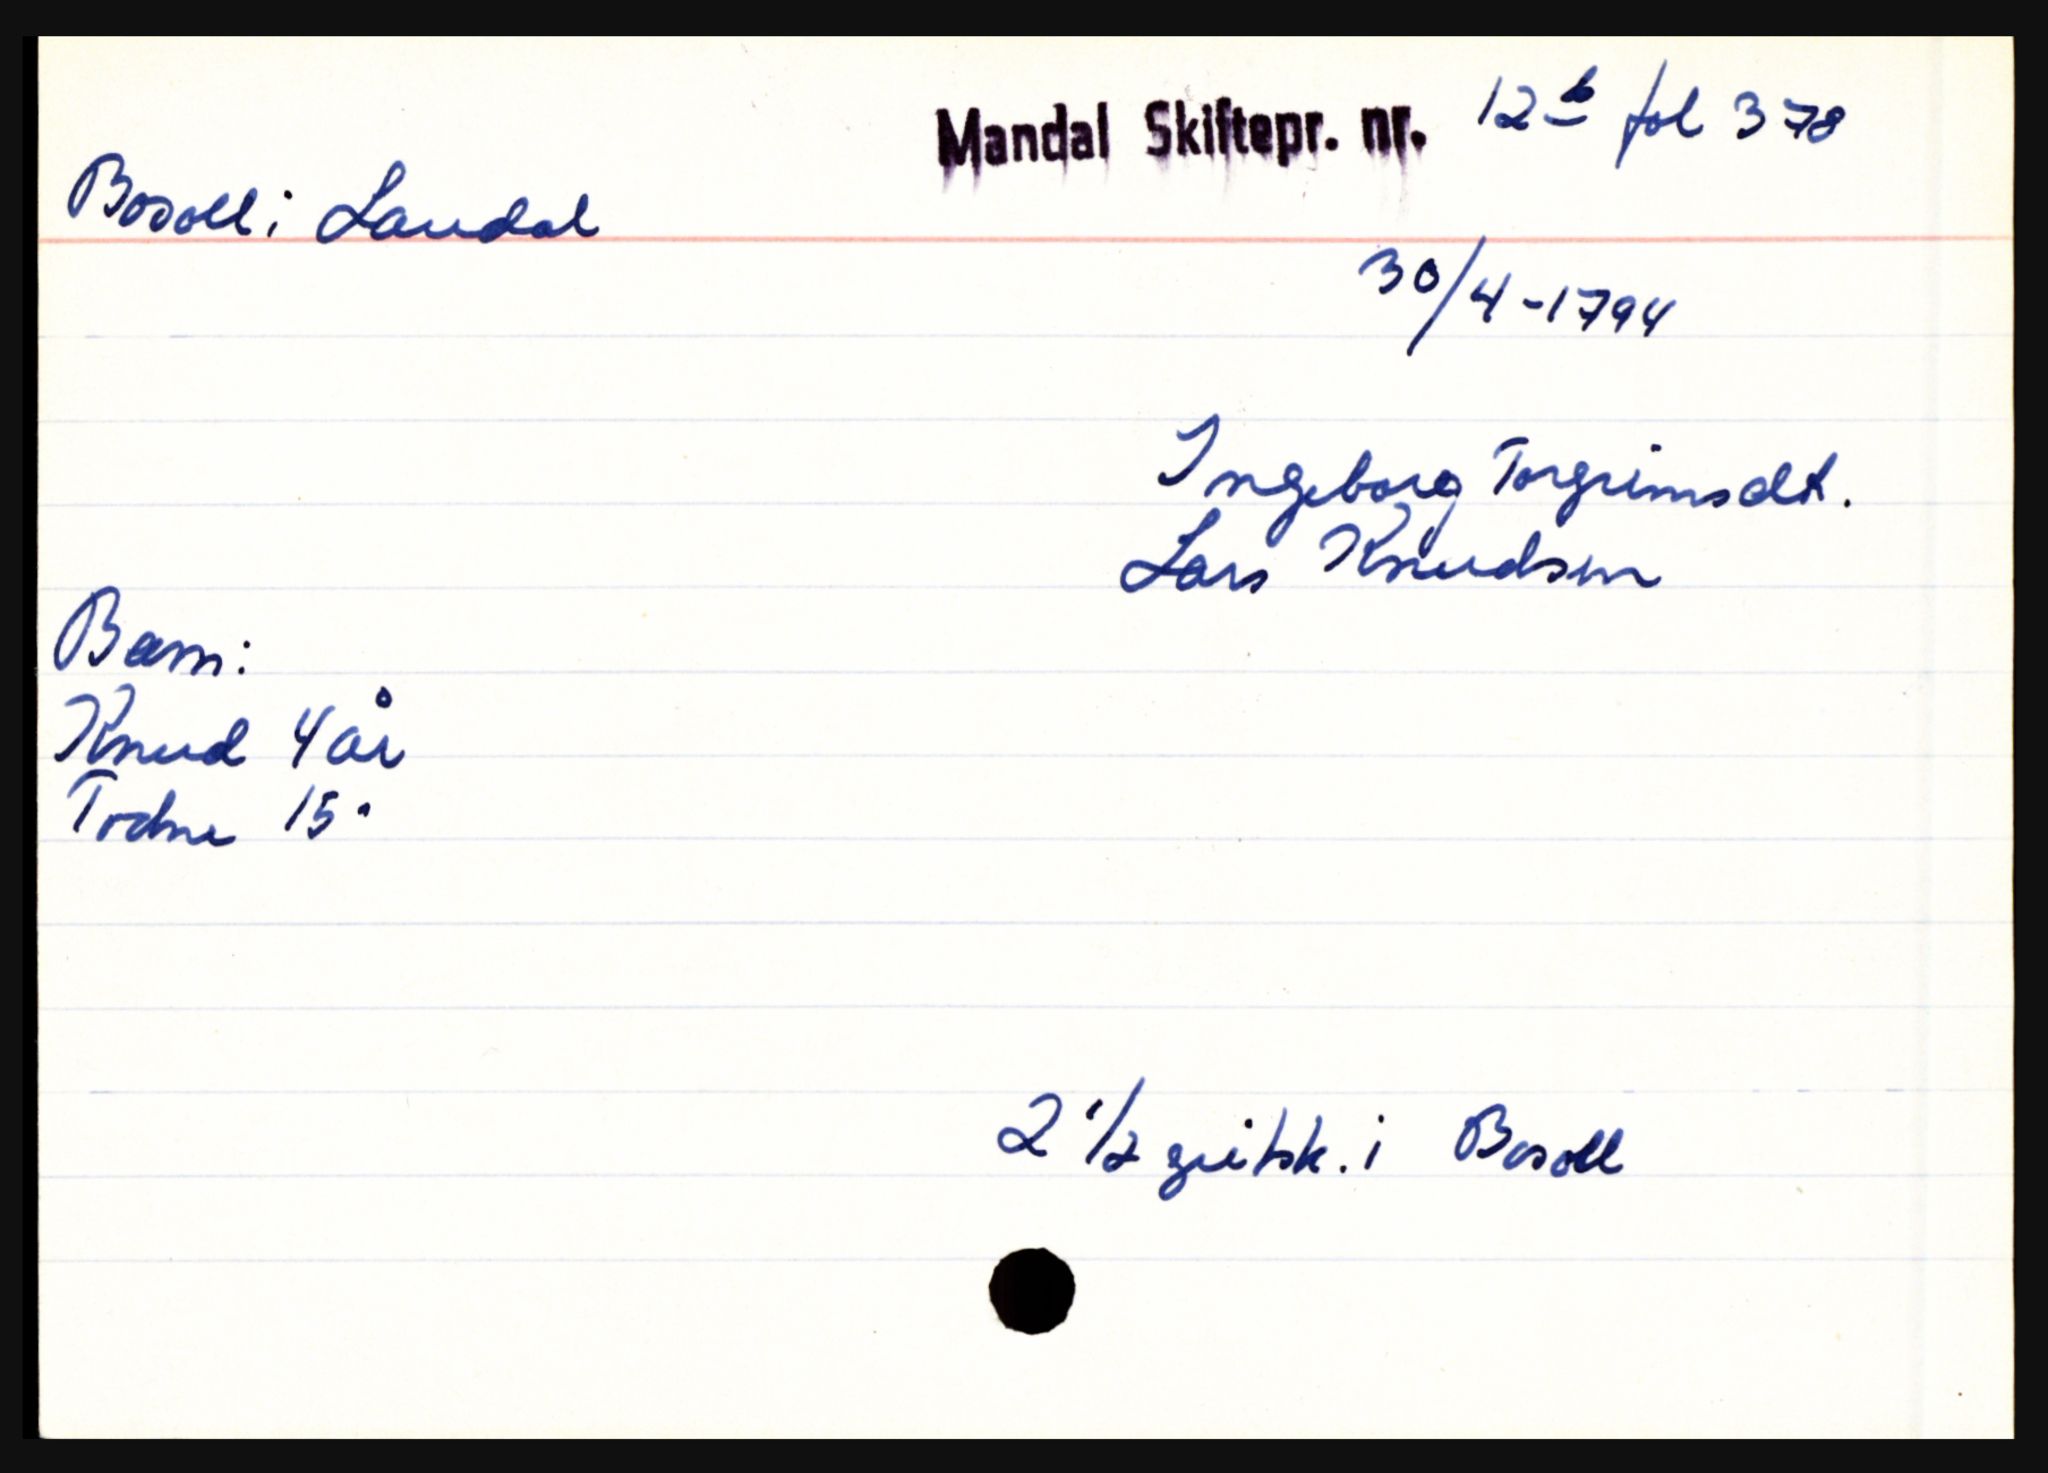 Mandal Skiftepr. nr. 12 b fol 378
Bosoll i Laudal
30/4-1794
Ingeborg Torgrimsdt.
Lars Knudsen
Barn:
Knud 4 år
Todne 15 "
2 1/2 gritsk. i Bosoll